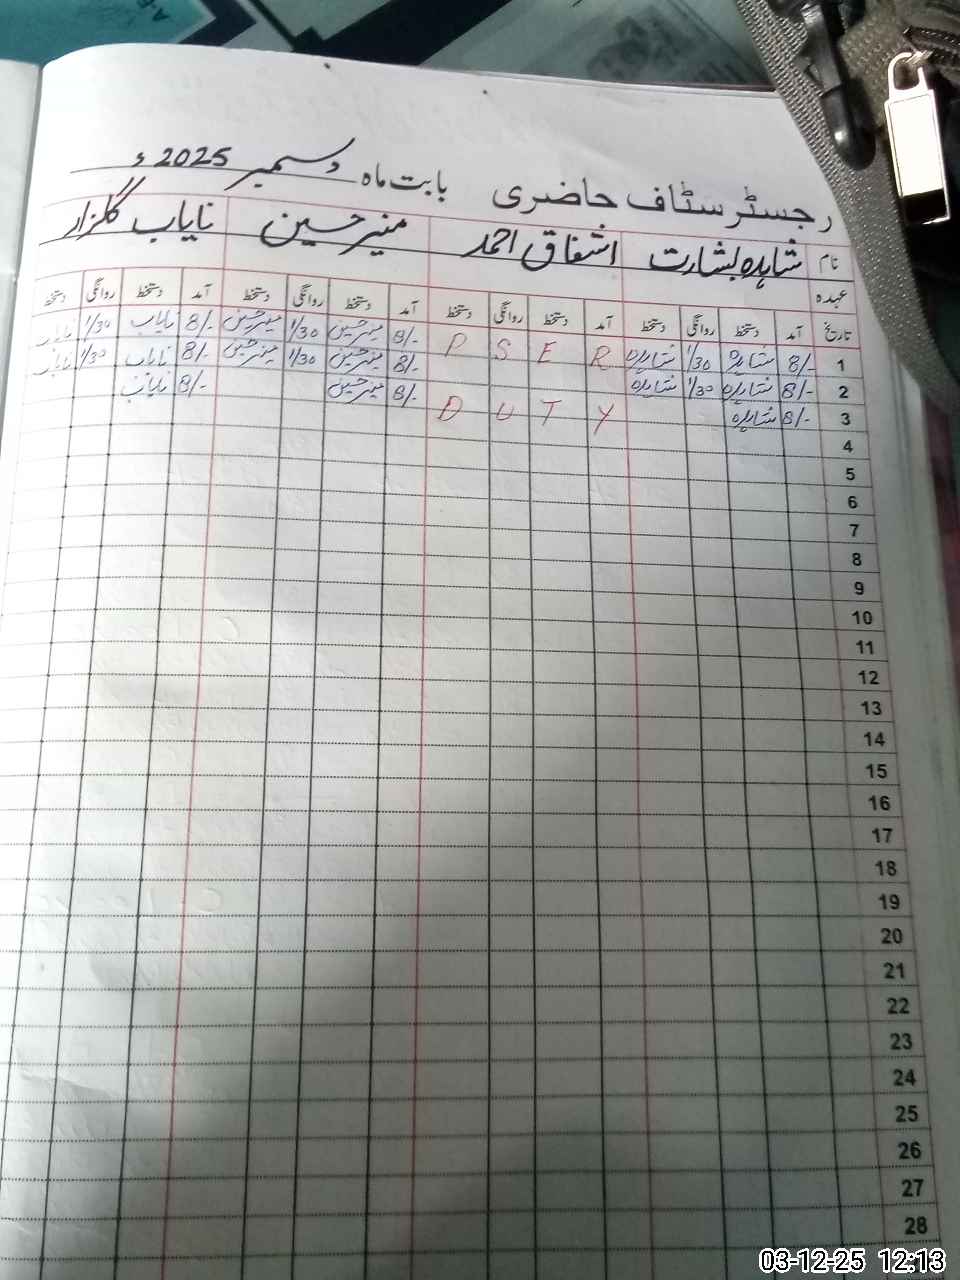 رجسٹر سٹاف حاضری بابت ماہ دسمبر 2025ء
نام شاہدہ بشارت اشفاق احمد منیر حسین نایاب گلزار
عہدہ
تاریخ آمد دستخط روانگی دستخط آمد دستخط روانگی دستخط آمد دستخط روانگی دستخط آمد دستخط روانگی دستخط
1 8/- شاہدہ 1/30 شاہدہ R E S P 8/- منیر حسین 1/30 منیر حسین 8/- نایاب 1/30 نایاب
2 8/- شاہدہ 1/30 شاہدہ 8/- منیر حسین 1/30 منیر حسین 8/- نایاب 1/30 نایاب
3 8/- شاہدہ Y T U D 8/- منیر حسین 8/- نایاب
4
5
6
7
8
9
10
11
12
13
14
15
16
17
18
19
20
21
22
23
24
25
26
27
28
03-12-25 12:13